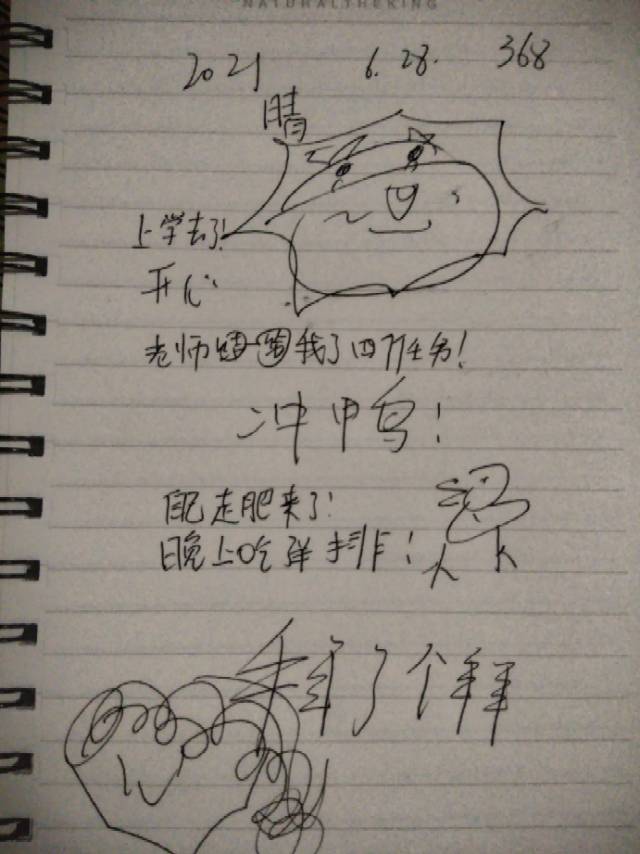 NATURALTHEKING
2021 6.28. 368
晴
上学去了!
开心
老师 我了四个任务!
冲甲鸟!
肥走肥来了!
晚上吃羊排!
拜了个拜